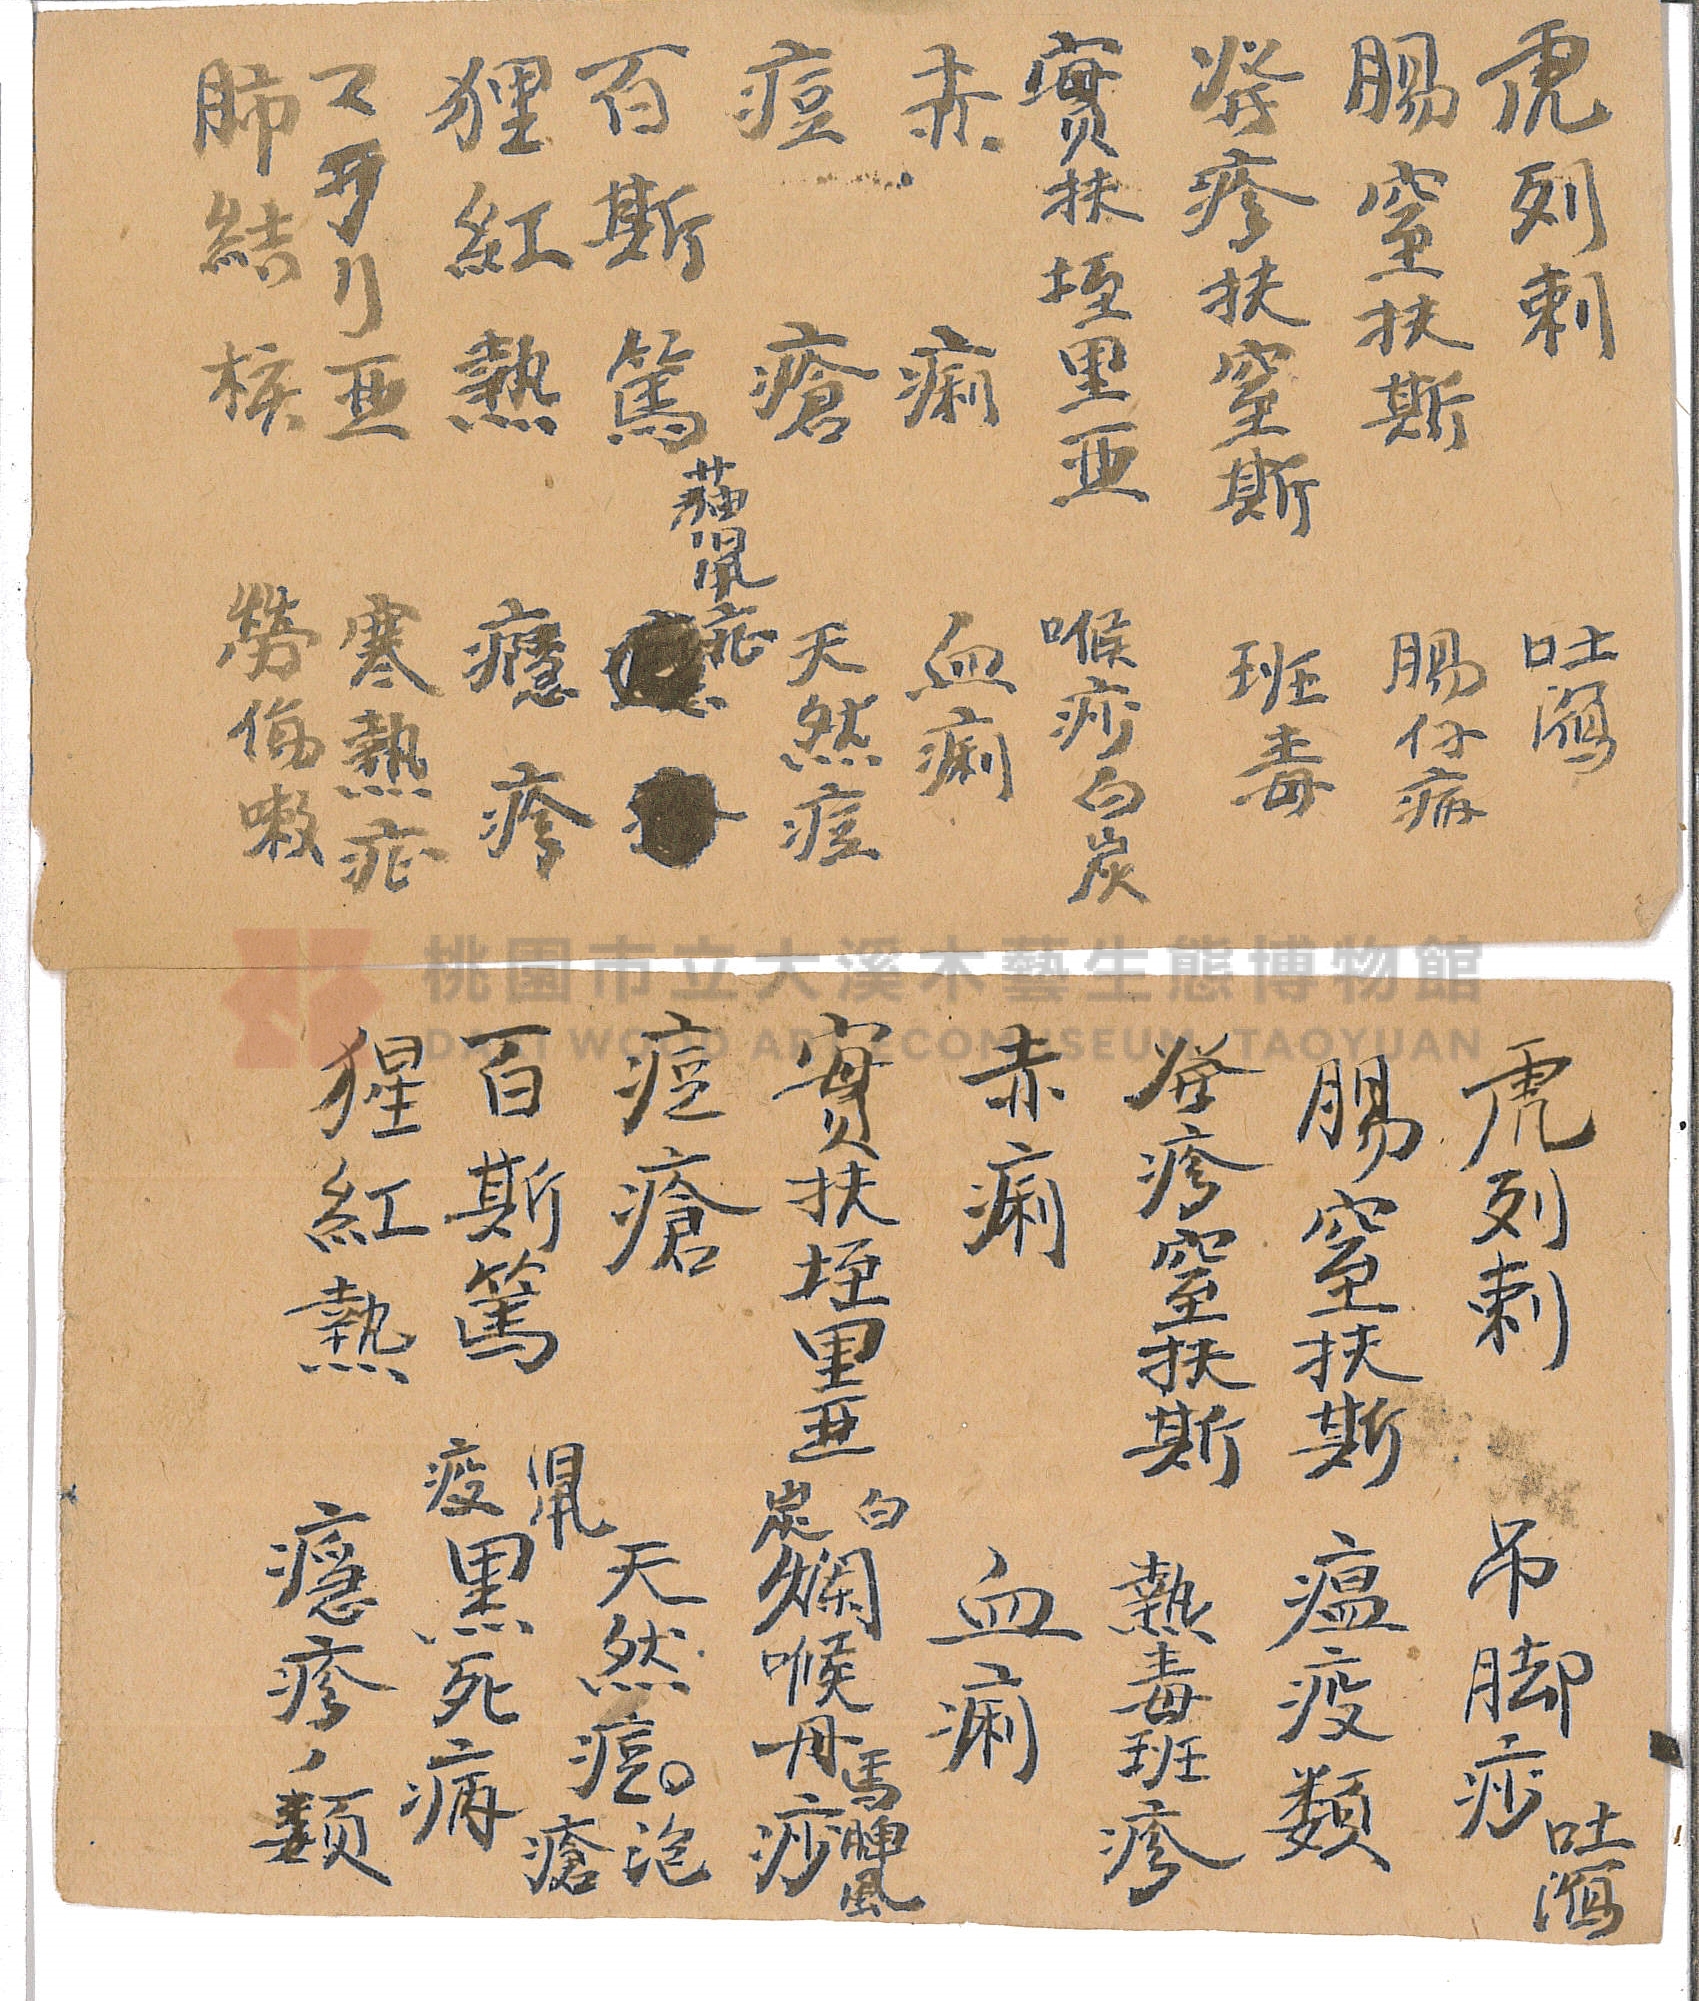 虎列剌 吐瀉
腸窒扶斯 腸仔病
發疹扶窒斯 班毒
實扶垤里亞 喉痧白炭
赤痢 血痢
痘瘡 天然痘
百斯篤 鼠症
狸紅熱 癮疹
マヲリ亜 寒熱症
肺結核 勞傷嗽
桃園市立大溪木藝生態博物館
DAXI WOOD ART ECOMUSEUM, TAOYUAN
虎列剌 吊脚痧 吐瀉
腸窒扶斯 瘟疫類
發疹窒扶斯 熱毒班疹
赤痢 血痢
實扶垤里亜 白炭爛喉毋痧 馬脾風
痘瘡 天然痘。泡瘡
百斯篤 鼠疫黑死病
猩紅熱 癮疹ノ類